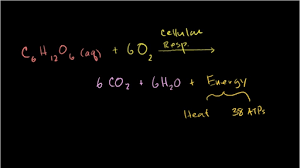 C₆H₁₂O₆ (aq) + 6O₂ Cellular Resp. →
6 CO₂ + 6H₂O + Energy
Heat 38 ATPs